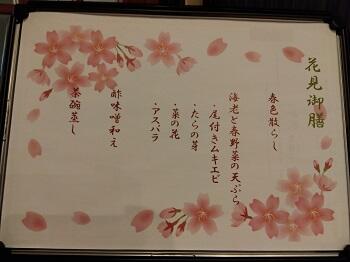 花見御膳
春色散らし
海老と春野菜の天ぷら
・尾付きムキエビ
・たらの芽
・菜の花
・アスパラ
酢味噌和え
茶碗蒸し